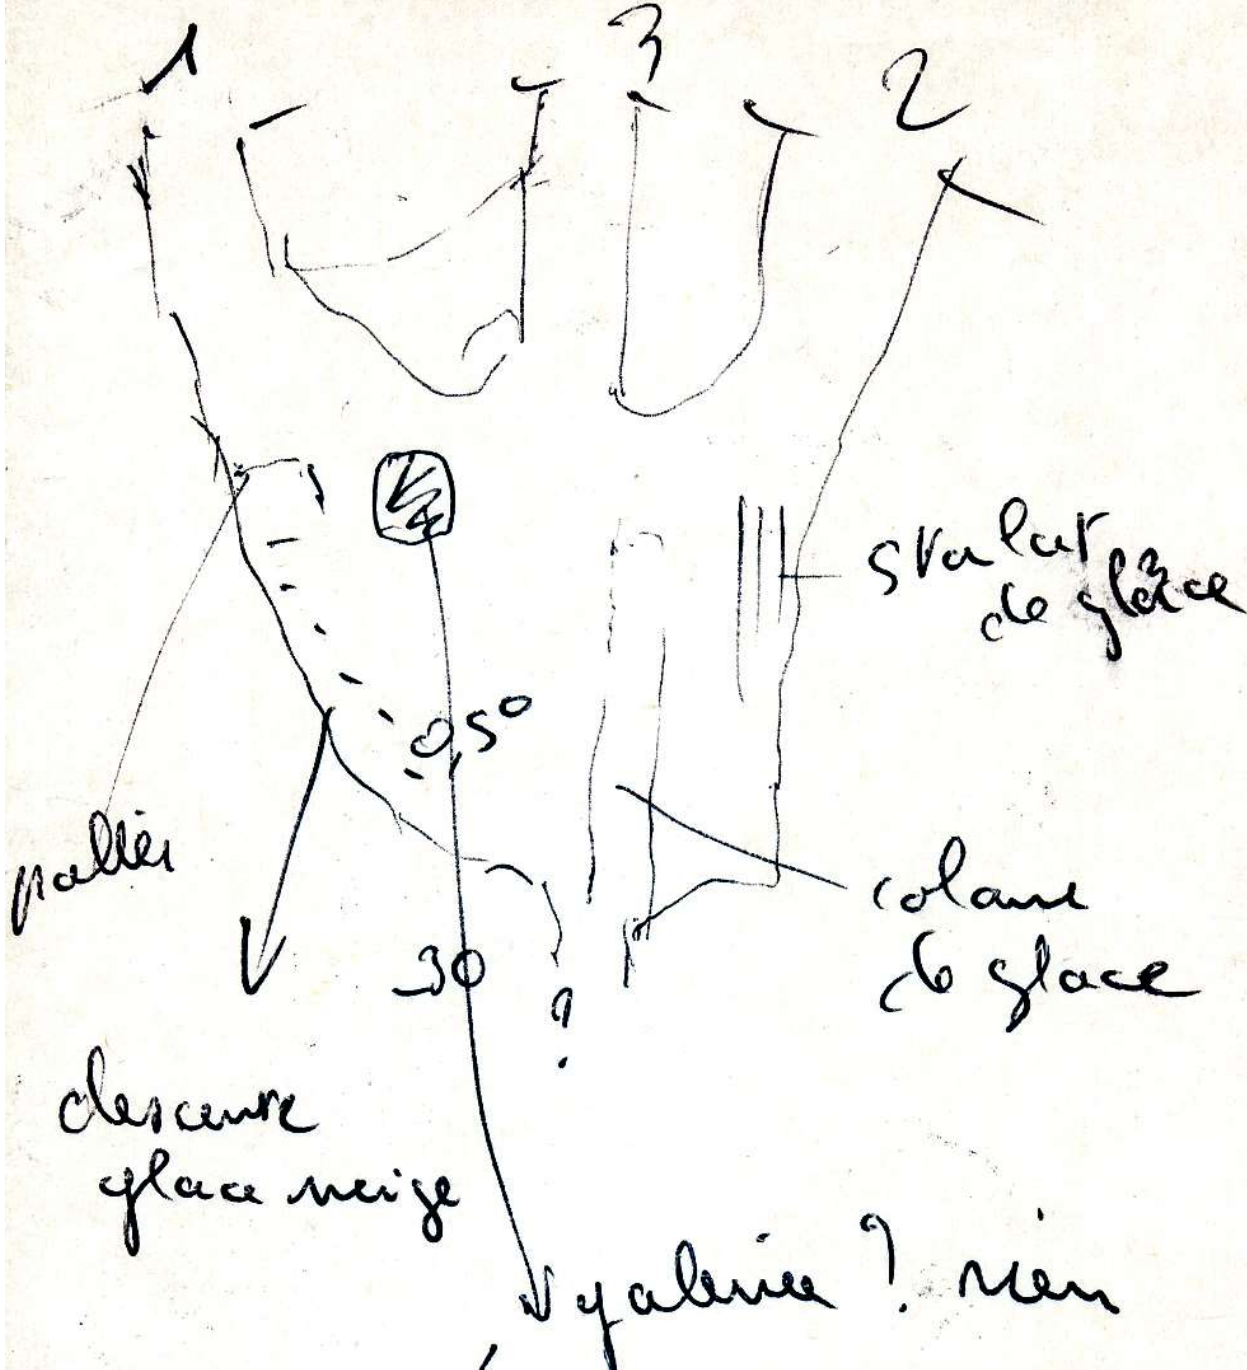 1
3
2
stalact
de glace
0,5°
pallier
colane
de glace
-30
?
descente
glace neige
galerie ? rien